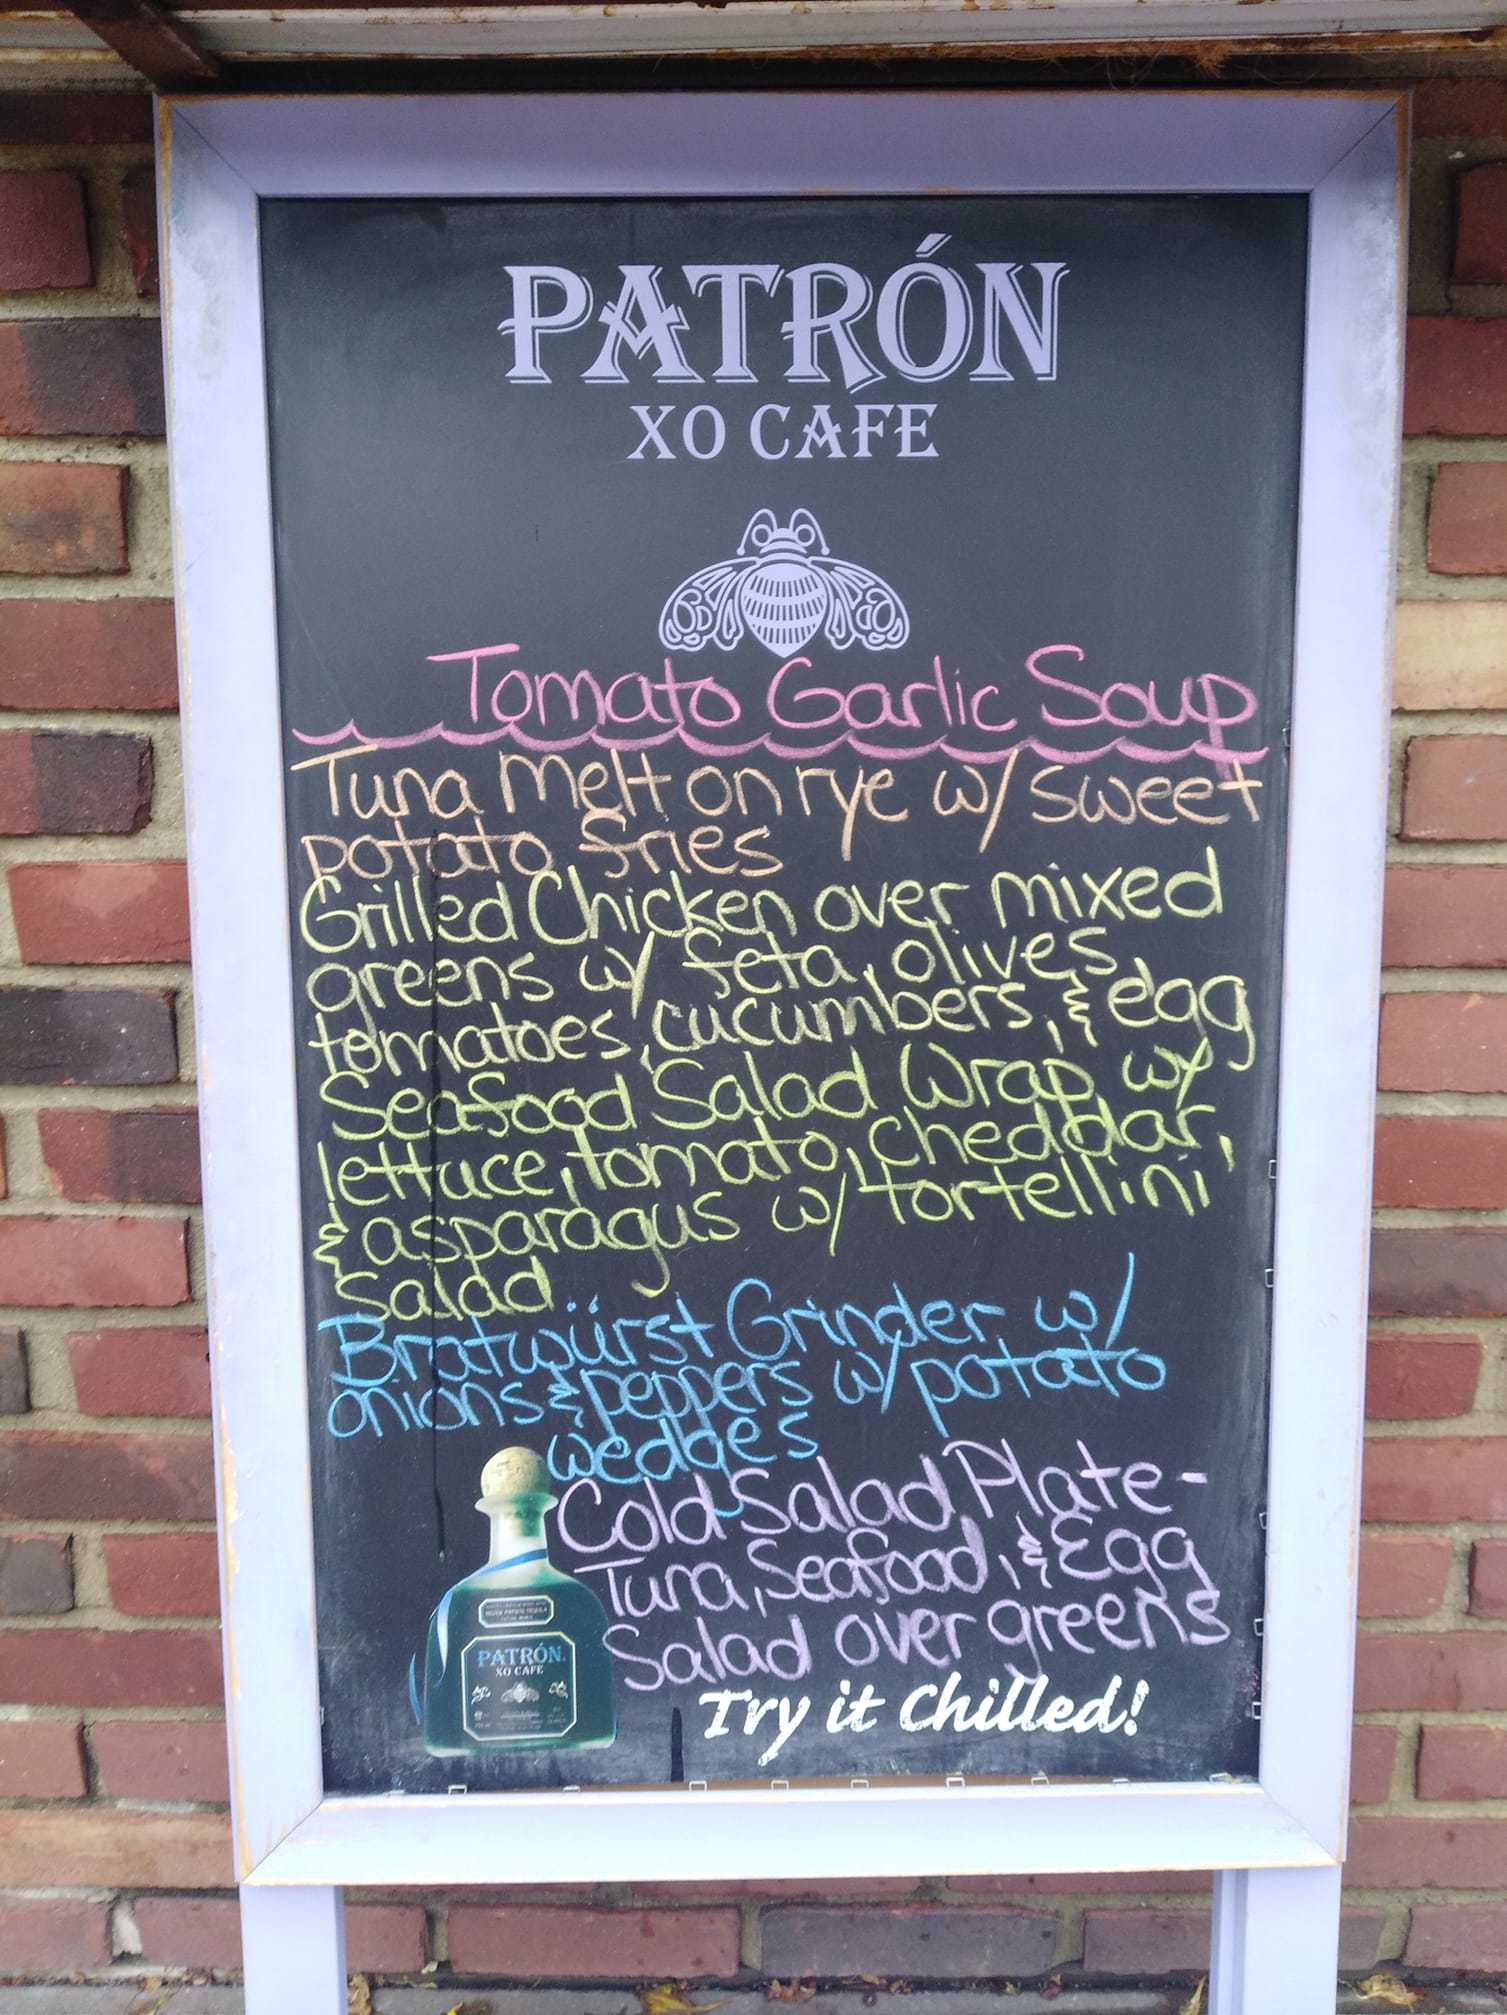 PATRÓN
XO CAFE
Tomato Garlic Soup
Tuna Melt on rye w/ sweet
potato fries
Grilled Chicken over mixed
greens w/ feta, olives
tomatoes, cucumbers, & egg
Seafood Salad Wrap w/
lettuce, tomato, cheddar,
& asparagus w/ tortellini
Salad
Bratwüirst Grinder w/
onions & peppers w/ potato
wedges
Cold Salad Plate -
Tuna, Seafood, & Egg
Salad over greens
PATRÓN
XO CAFE
Try it Chilled!